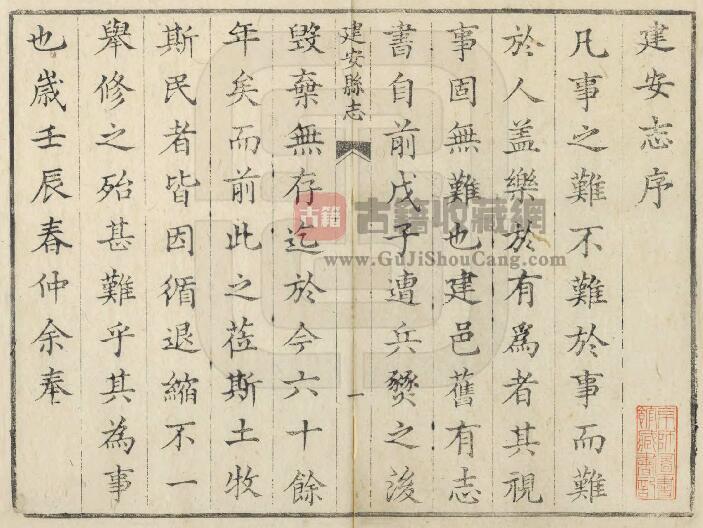 建安志序
凡事之難不難於事而難
於人盖樂於有爲者其視
事固無難也建邑舊有志
書自前戊子遭兵燹之後
建安縣志
一
毀棄無存迄於今六十餘
年矣而前此之莅斯土牧
斯民者皆因循退縮不一
舉修之殆甚難乎其為事
也嵗壬辰春仲余奉
古籍
古籍收藏網
www.GuJiShouCang.com